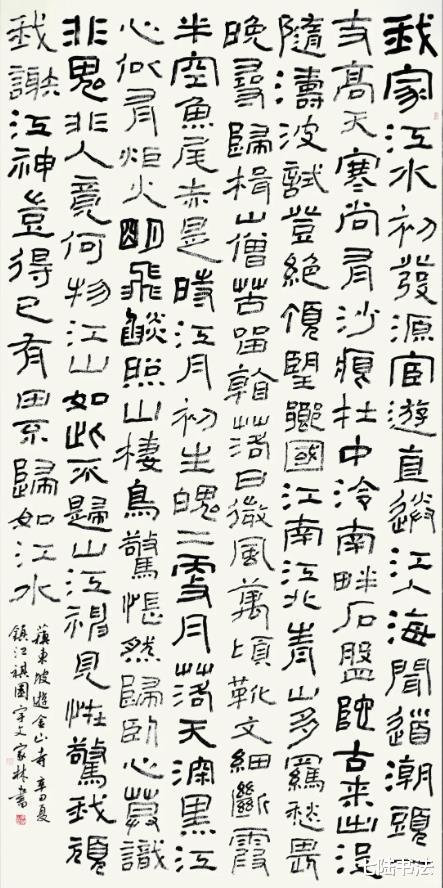 我家江水初發源宦遊直送江入海聞道潮頭
丈高天寒尚有沙痕在中泠南畔石盤陀古來出没
隨濤波試登絕頂望鄉國江南江北青山多羈愁畏
晚尋歸楫山僧苦留看落日微風萬頃靴文細斷霞
半空魚尾赤是時江月初生魄二更月落天深黑江
心似有炬火明飛焰照山棲鳥驚悵然歸卧心莫識
非鬼非人竟何物江山如此不歸山江神見怪驚我頑
我謝江神豈得已有田不歸如江水
蘇東坡遊金山寺 辛丑夏
鎮江祺園宇文家林書
七陆书法